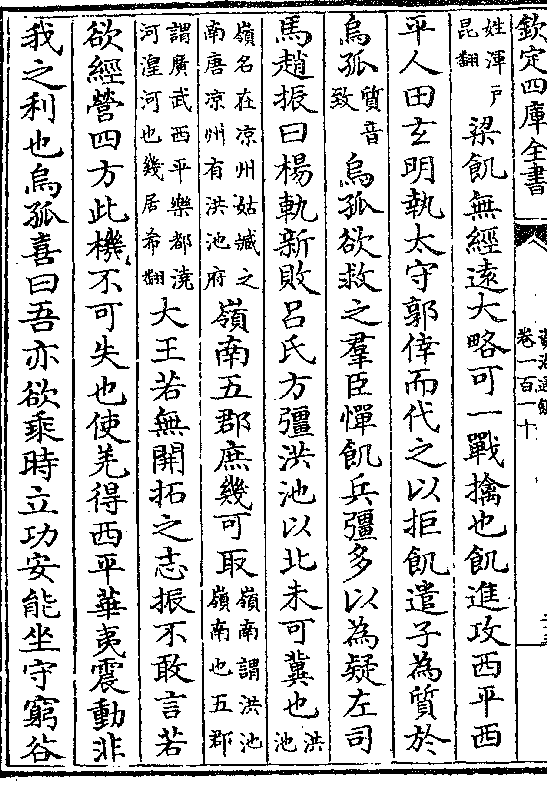 欽定四庫全書
卷一百一十
姓渾戶昆翻梁飢無經遠大略可一戰擒也飢進攻西平西
平人田玄明執太守郭倖而代之以拒飢遣子為質於
烏孤質音致烏孤欲救之羣臣憚飢兵彊多以為疑左司
馬趙振曰楊軌新敗呂氏方彊洪池以北未可冀也洪池
嶺名在凉州姑臧之南唐凉州有洪池府嶺南五郡庶幾可取嶺南謂洪池嶺南也五郡
謂廣武西平樂都澆河湟河也幾居希翻大王若無開拓之志振不敢言若
欲經營四方此機不可失也使羌得西平華夷震動非
我之利也烏孤喜曰吾亦欲乘時立功安能坐守窮谷